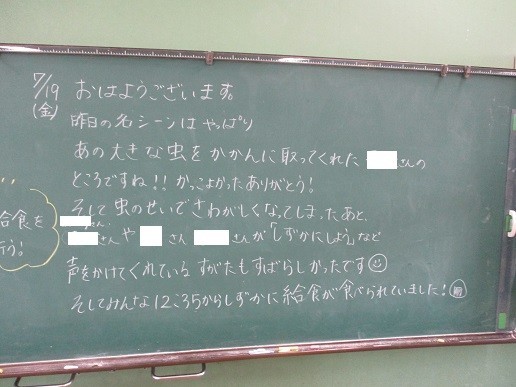 7/19
(金)
おはようございます。
昨日の名シーンはやっぱり
あの大きな虫をかかんに取ってくれた さんの
ところですね!!かっこよかったありがとう!
そして虫のせいでさわがしくなってしまったあと、
さん、
さんや さん さんが「しずかにしよう」など
声をかけてくれているすがたもすばらしかったです
そしてみんな12:35からしずかに給食が食べられていました!
給食を
行う!